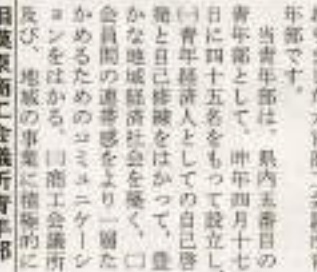 年部です。
　当青年部は、県内五番目の
青年部として、昨年四月十七
日に四十五名をもって設立し、
㈠青年経済人としての自己啓
発と自己修練をはかって、豊
かな地域経済社会を築く、㈡
会員間の連帯感をより一層た
かめるためのコミュニケーシ
ョンをはかる、㈢商工会議所
及び、地域の事業に積極的に
商工会議所青年部